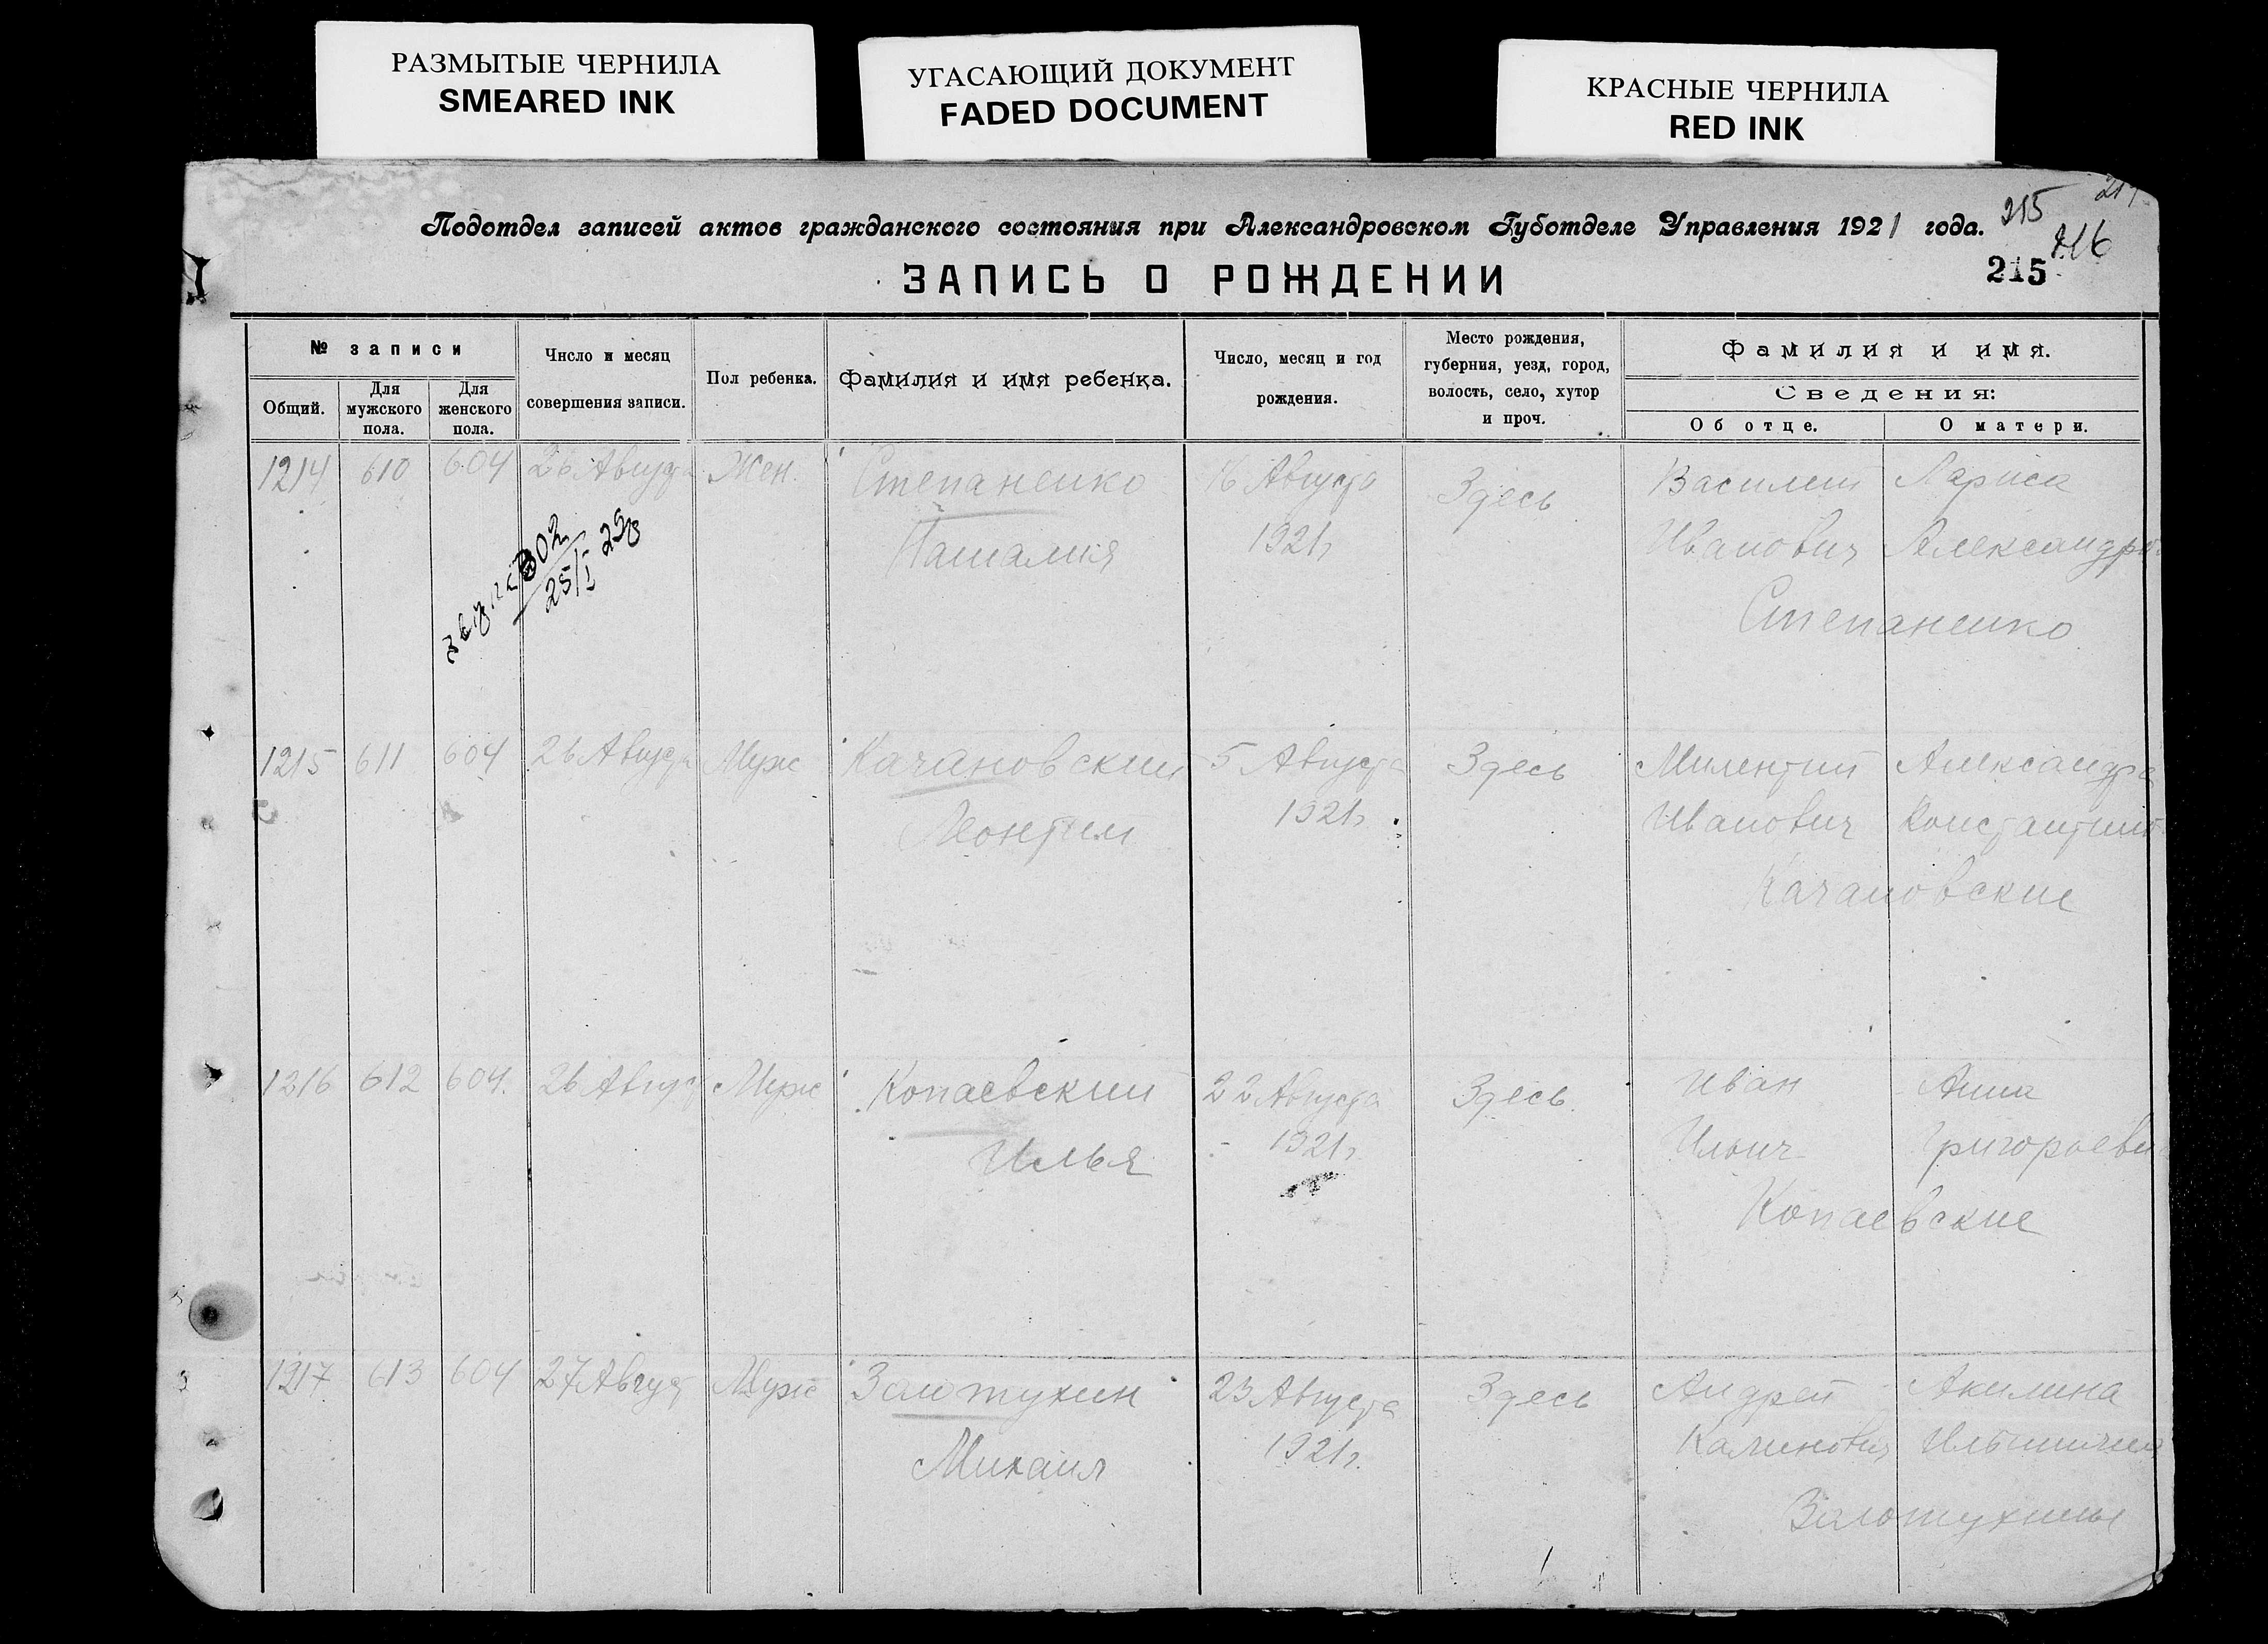 РАЗМЫТЫЕ ЧЕРНИЛА
SMEARED INK
УГАСАЮЩИЙ ДОКУМЕНТ
FADED DOCUMENT
КРАСНЫЕ ЧЕРНИЛА
RED INK
Подотдел записей актов гражданского состояния при Александровском Губотделе Управления 1921 года.
215
216
215
ЗАПИСЬ О РОЖДЕНИИ
№ записи
Общий.
Для мужского пола.
Для женского пола.
Число и месяц
совершения записи.
Пол ребенка.
Фамилия и имя ребенка.
Число, месяц и год
рождения.
Место рождения,
губерния, уезд, город,
волость, село, хутор
и проч.
Фамилия и имя.
Сведения:
Об отце.
О матери.
1214 610 604 26 Августа Жен. Степаненко 16 Августа Здесь Василий Лариса
Наталия 1921г Иванович Александро
Степаненко
302
25/I 29
1215 611 604 26 Августа Муж Качановский 5 Августа Здесь Милентий Александра
Леонтий 1921г. Иванович Константинов
Качановские
1216 612 604. 26 Август Муж Копаевский 22 Августа Здесь. Иван Анна
Илья 1921г. Ильич Григорьевн
Копаевские
1217 613 604 27 Август Муж Золотухин 23 Августа Здесь Андрей Акилина
Михаил 1921г. Калинович
Золотухины